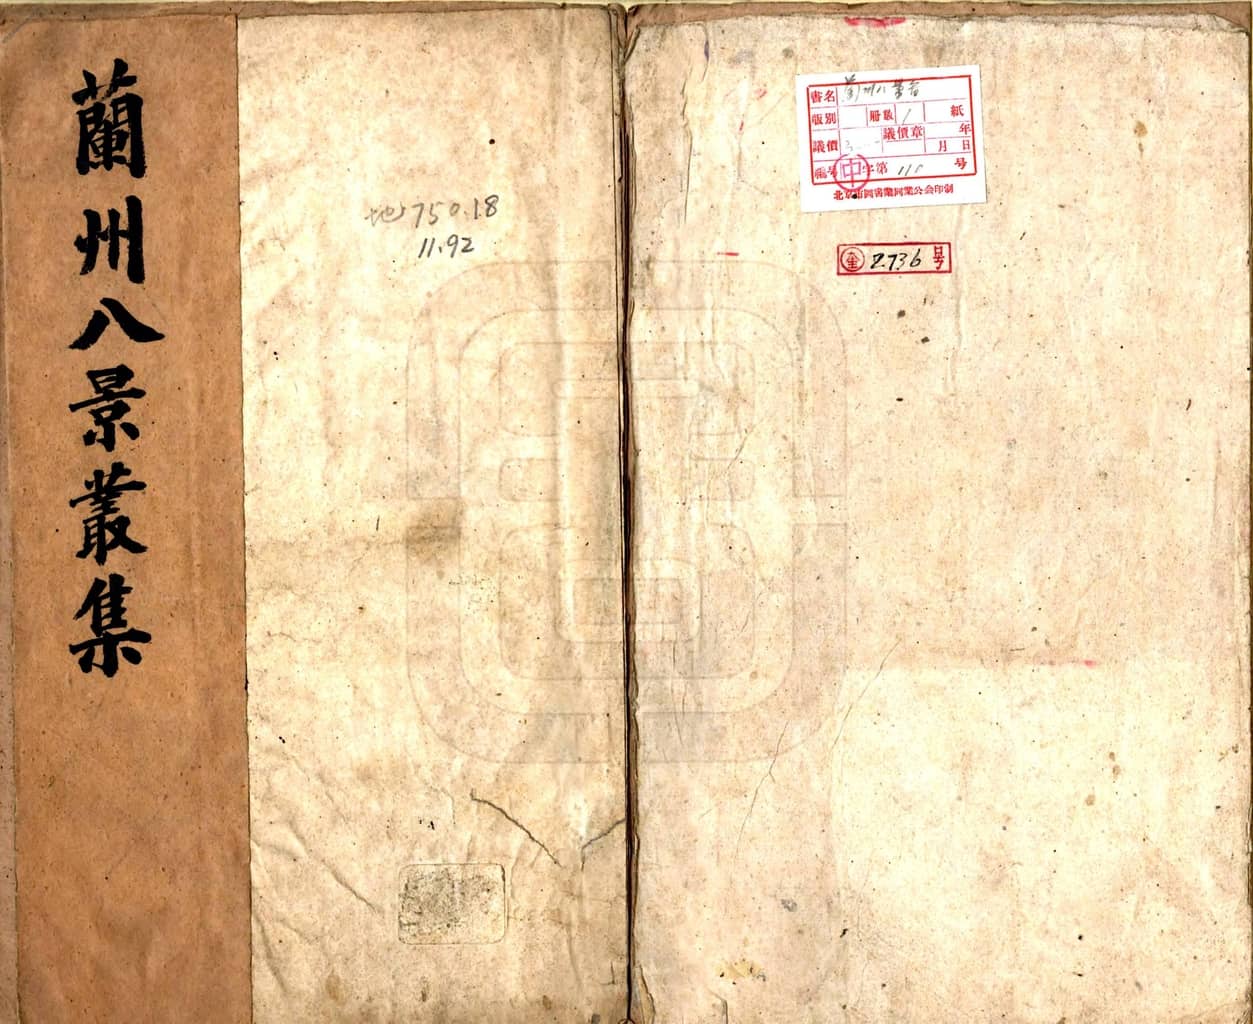 蘭州八景叢集
地750.18
11.92
書名 蘭州八景
版別 冊數 1 紙
議價 議價章 年月日
編号 中字第 号
北京市圖書業同業公会印制
奎 2736 号